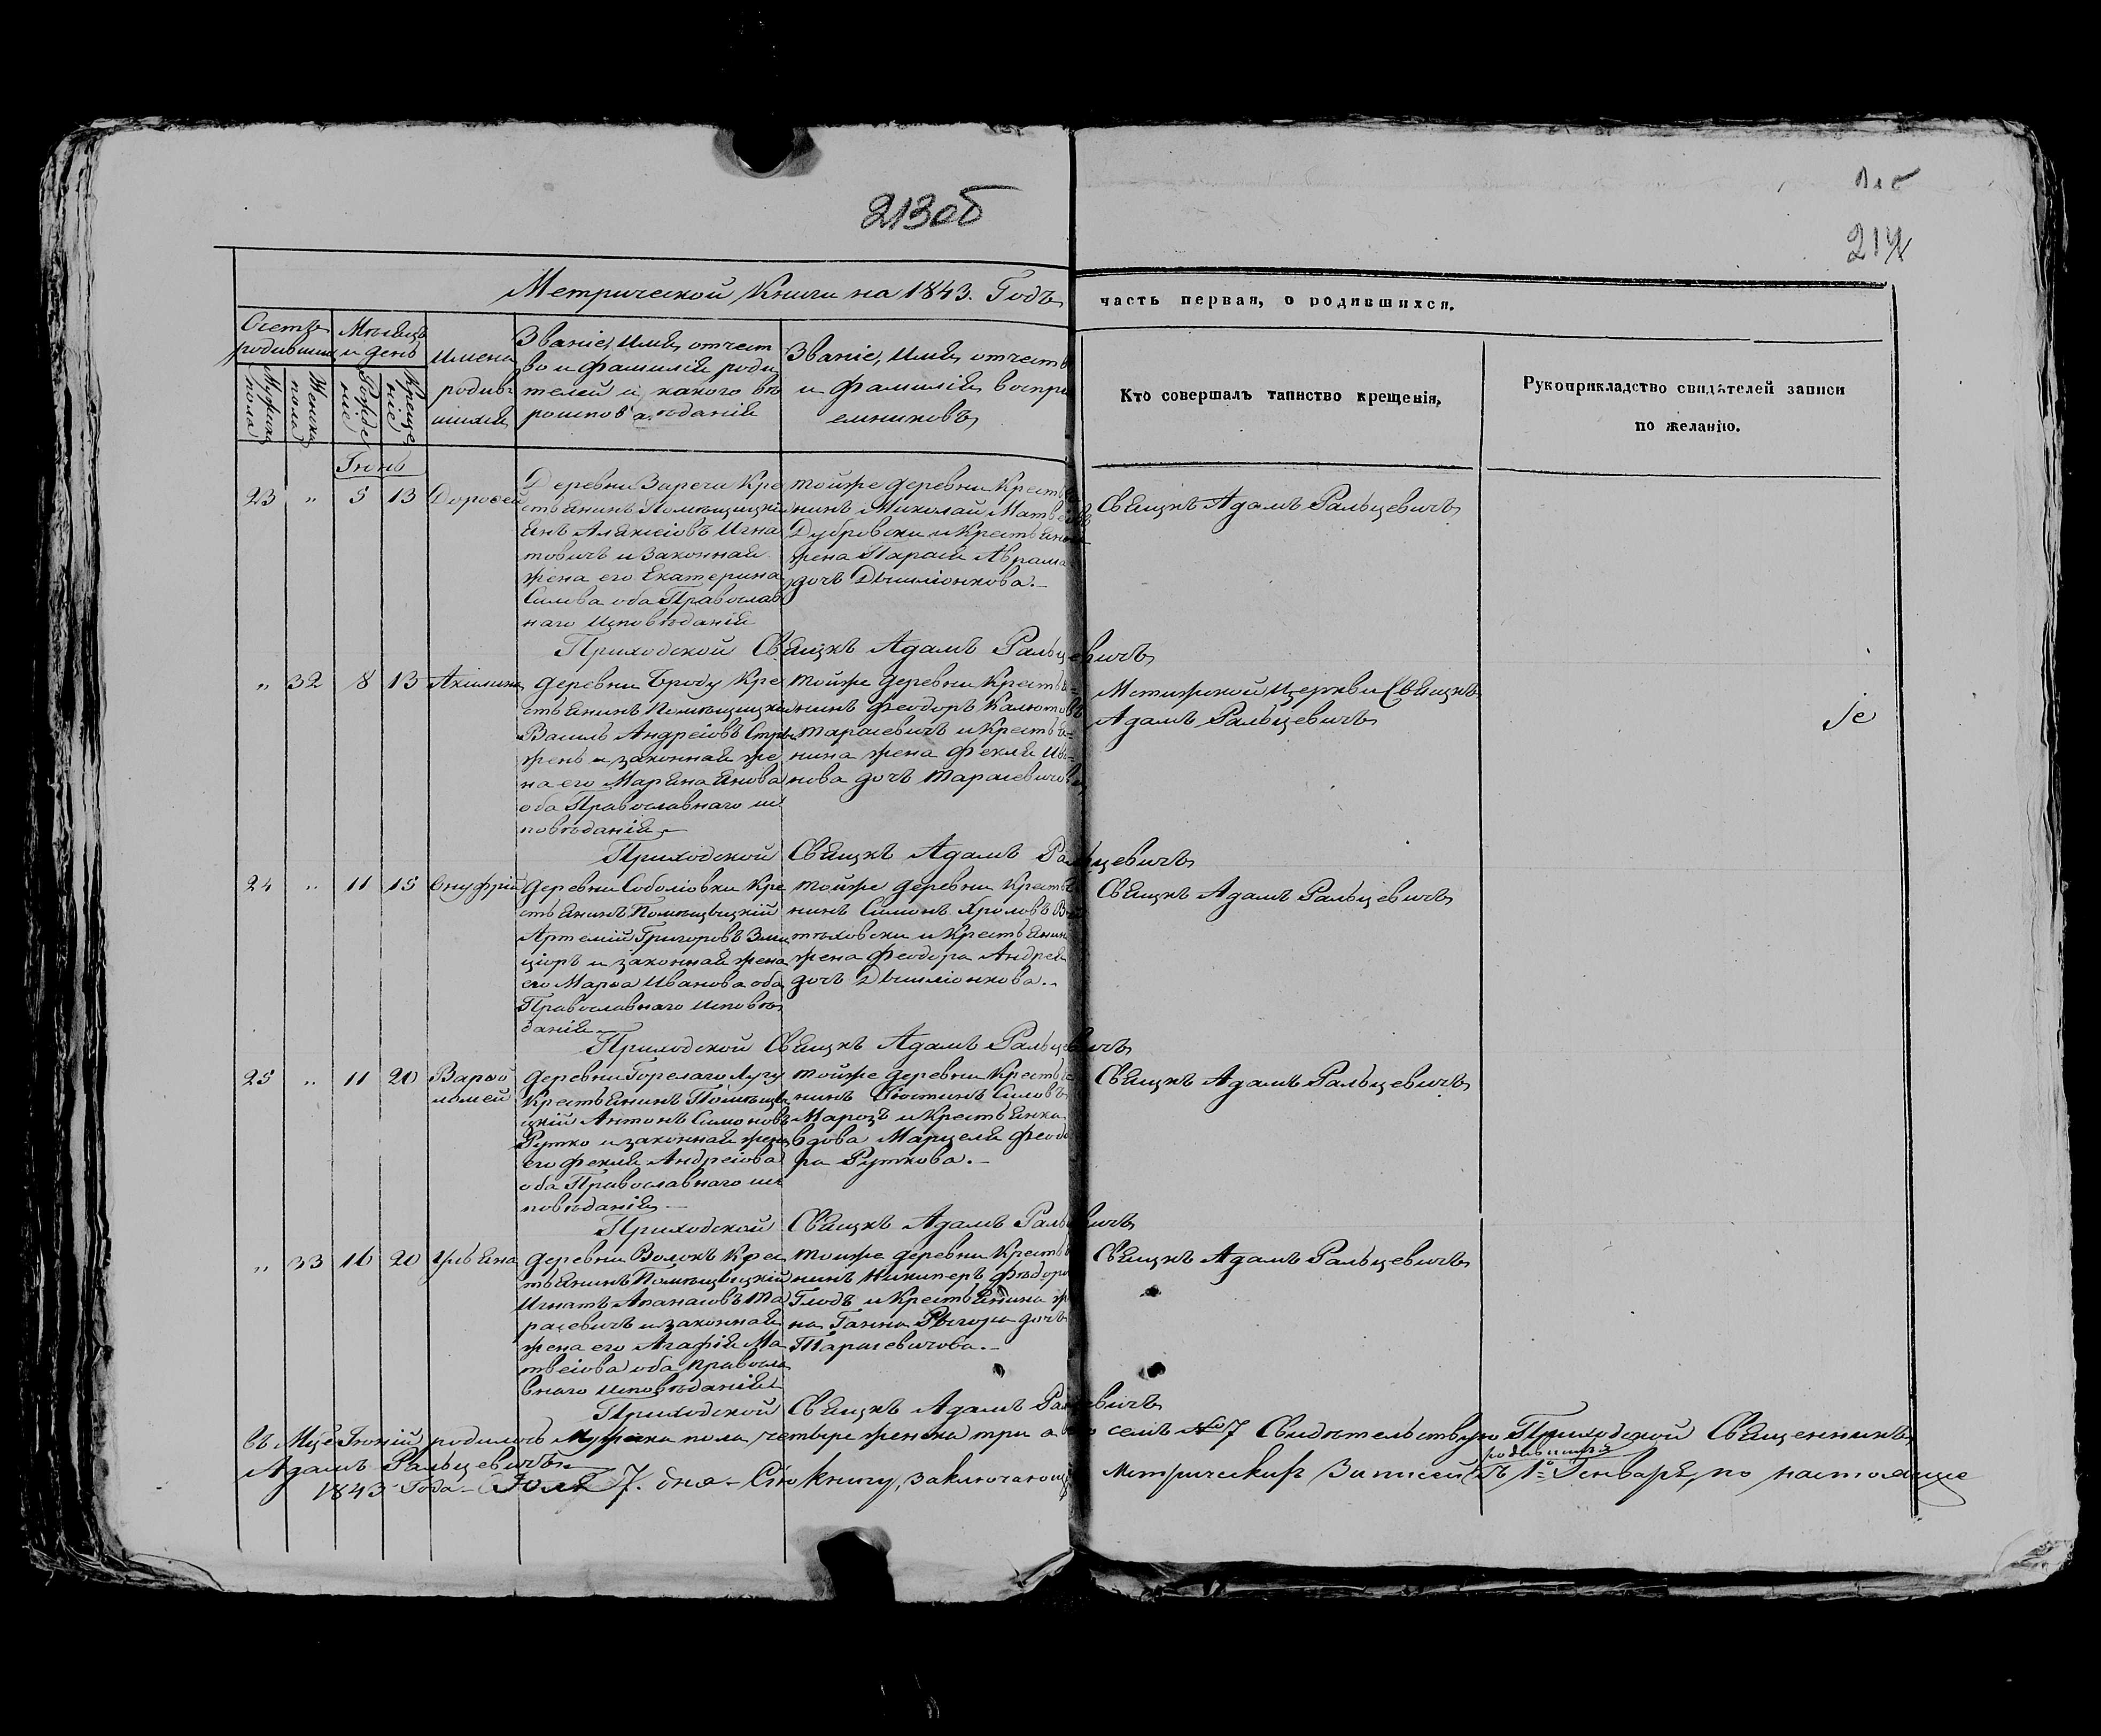 213об
214
Метрической Книги на 1843. Годъ часть первая, о родившихся.
Счетъ родившихся
Мужска пола
Женска пола
Мѣсяцъ и день
Рожденіе
Крещеніе
Имена
родив-
шихся
Званіе, имя, отчест
во и фамилія роди
телей и какого вѣ
роисповѣданія
Званіе, имя, отчеств
и фамилія воспрі
емниковъ
Кто совершалъ таинство крещенія,
Рукоприкладство свидѣтелей записи
по желанію.
Іюнь
23 " 5 13 Дорофей
Деревни Заречи Кре
стьянинъ Помѣщицкі
Янъ Алексіовъ Игна
товичъ и законная
жена его Екатерина
Силова оба Православ
наго исповѣданія
тойже деревни Крестья
нинъ Миколай Матвеовъ
Дубровски и Крестьянина
жена Парася Аврама
дочь Дышліонкова.
Свящнъ Адамъ Ральцевичъ
Приходской Свящнъ Адамъ Ральцевичъ
" 32 8 13 Акилина
деревни Броду Кре
стьянинъ Помѣщицки
Василь Андреіовъ
жень и законная же
на его Марьяна Янова
оба Православнаго ис
повѣданія
тойже деревни Крестья=
нинъ Феодоръ
Тарасевичъ и Крестья=
нина жена Фекля Ива
нова дочь Тарасевичова
церкви Свящнъ
Адамъ Ральцевичъ
Приходской Свящнъ Адамъ Ральцевичъ
24 " 11 15 Онуфрій
деревни Соболіовки Кре
стьянинъ Помѣщыцкій
Артемій Григоровъ Зми
ціоръ и законная жена
его Марѳа Иванова оба
Православнаго исповѣ
данія
тойже деревни Крестья
нинъ Симонъ Хроловъ
и Крестьянина
жена Феодора Андрея
дочь Дышліонкова.
Свящнъ Адамъ Ральцевичъ
Приходской Свящнъ Адамъ Ральцевичъ
25 " 11 20 Варѳо
ломей
деревни Горелаго Лугу
Крестьянинъ Помѣщи
цкій Антонъ Симоновъ
Рутко и законная жена
его Фекля Андреіова
оба Православнаго ис
повѣданія
тойже деревни Крестья=
нинъ Іюстинъ Силовъ
Марозъ и Крестьянка
вдова Марцеля Феодо
ра Руткова.
Свящнъ Адамъ Ральцевичъ
Приходской Свящнъ Адамъ Ральцевичъ
" 33 16 20 Ульяна
деревни Волокъ Крес
тьянинъ Помѣщыцкій
Игнатъ Апанасовъ Та
расевичъ и законная
жена его Агафія Ма
твеіова оба Правосла
внаго исповѣданія
тойже деревни Крестья
нинъ Никиперъ Фѣдоро
Глодъ и Крестьянина же
на Ганна Рыгора дочь
Тарасевичова.
Свящнъ Адамъ Ральцевичъ
Приходской Свящнъ Адамъ Ральцевичъ
Въ Мцѣ Іюній родилось Мужска пола четыре женска три а всего семь № 7 Свидѣтельствую Приходской Священникъ
Адамъ Ральцевичъ
1843 Года Іюля 7. дня Сію книгу, заключающую Метрическихъ Записей родившихся съ 1го Генваря, по настоящее